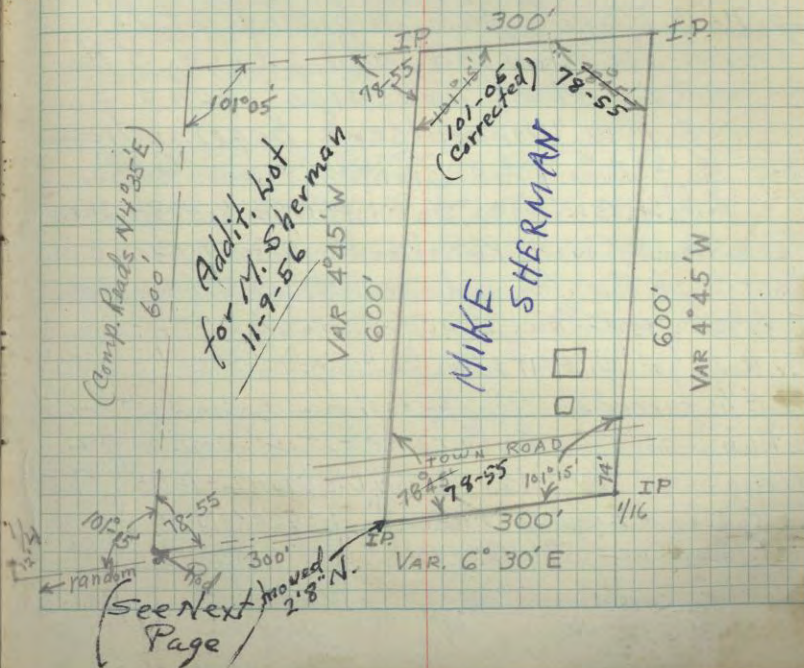 300'
I.P.
I.P.
101°05'
78-55
101-05
(Corrected)
78-55
(Comp. Reads N4°35'E)
600'
Addit. Lot
for M. Sherman
11-9-56
VAR 4°45' W
600'
MIKE
SHERMAN
600'
VAR 4°45' W
TOWN ROAD
78-55
101°15'
74'
IP
1/16
300'
I.P.
VAR. 6° 30' E
78-55
300'
random
Rod
moved
2'8" N.
(See Next
Page)